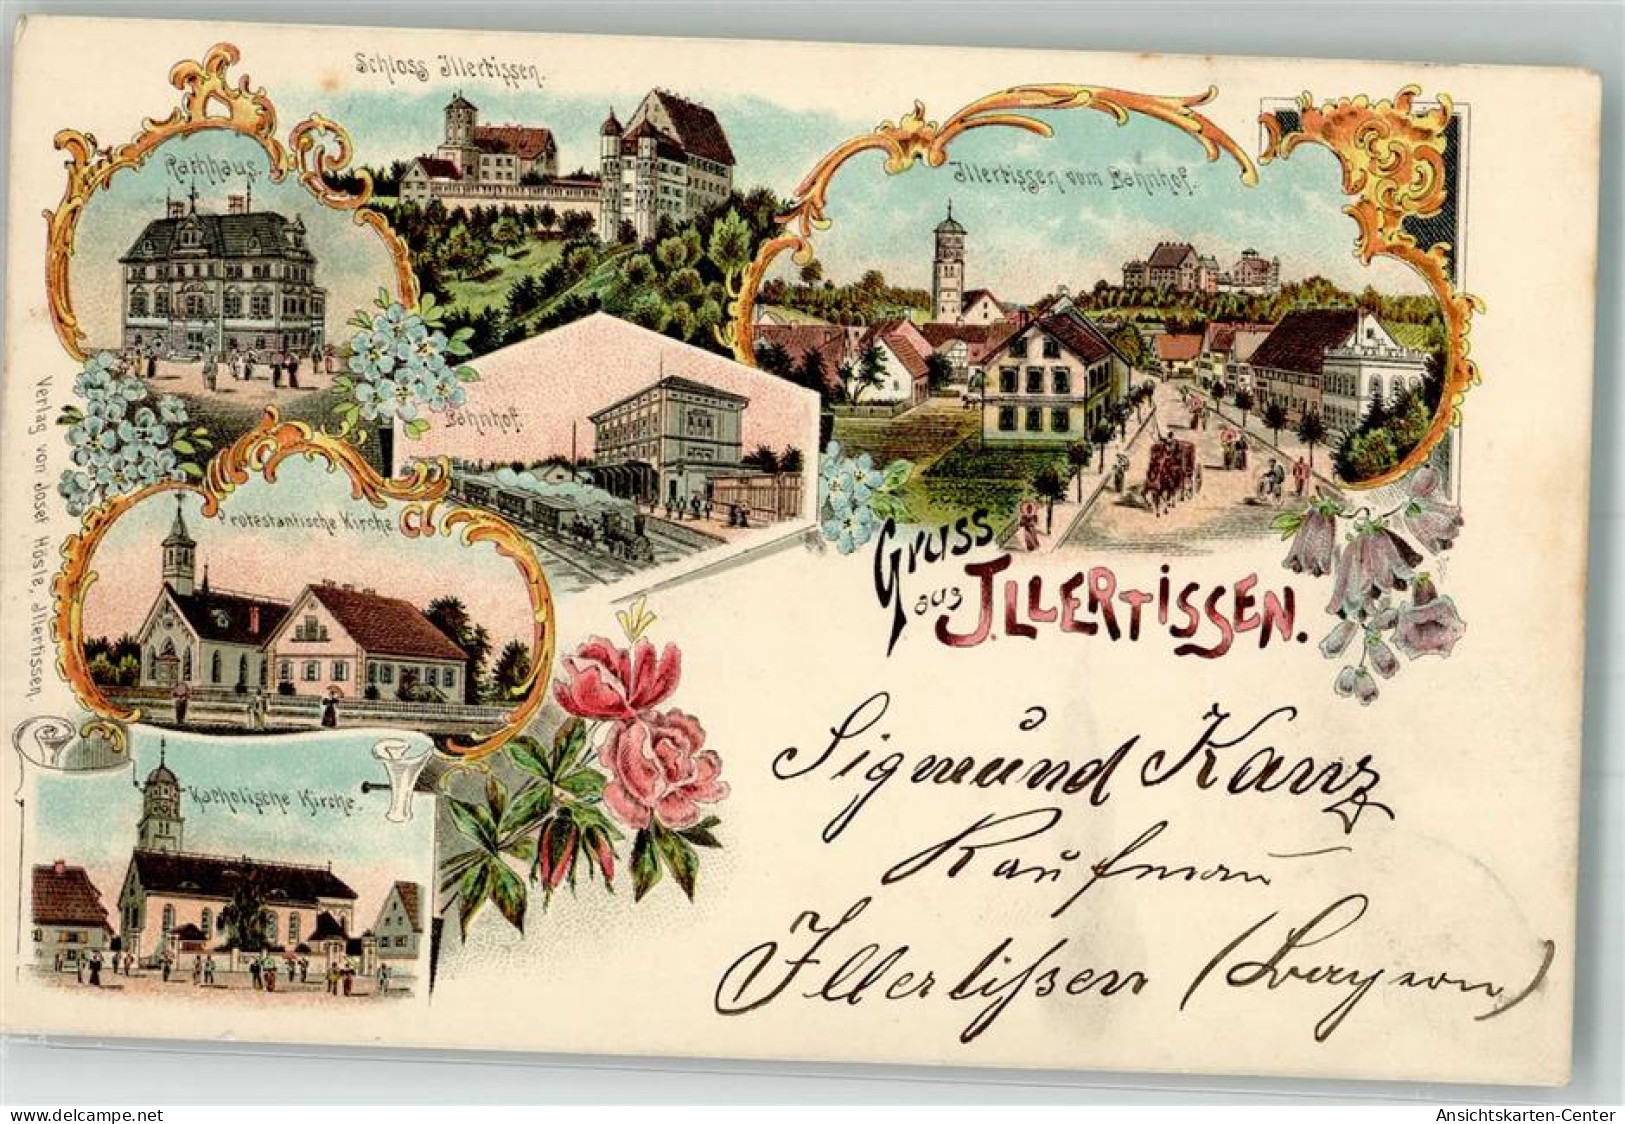 Schloss Illertissen.
Rathhaus.
Illertissen vom Bahnhof.
Bahnhof.
Protestantische Kirche.
Katholische Kirche.
Verlag von Josef Hösle, Illertissen.
Gruss
aus ILLERTISSEN.
Sigmund Kanz
Kaufman
Illertissen (Bayern)
delcampe.net
Ansichtskarten-Center